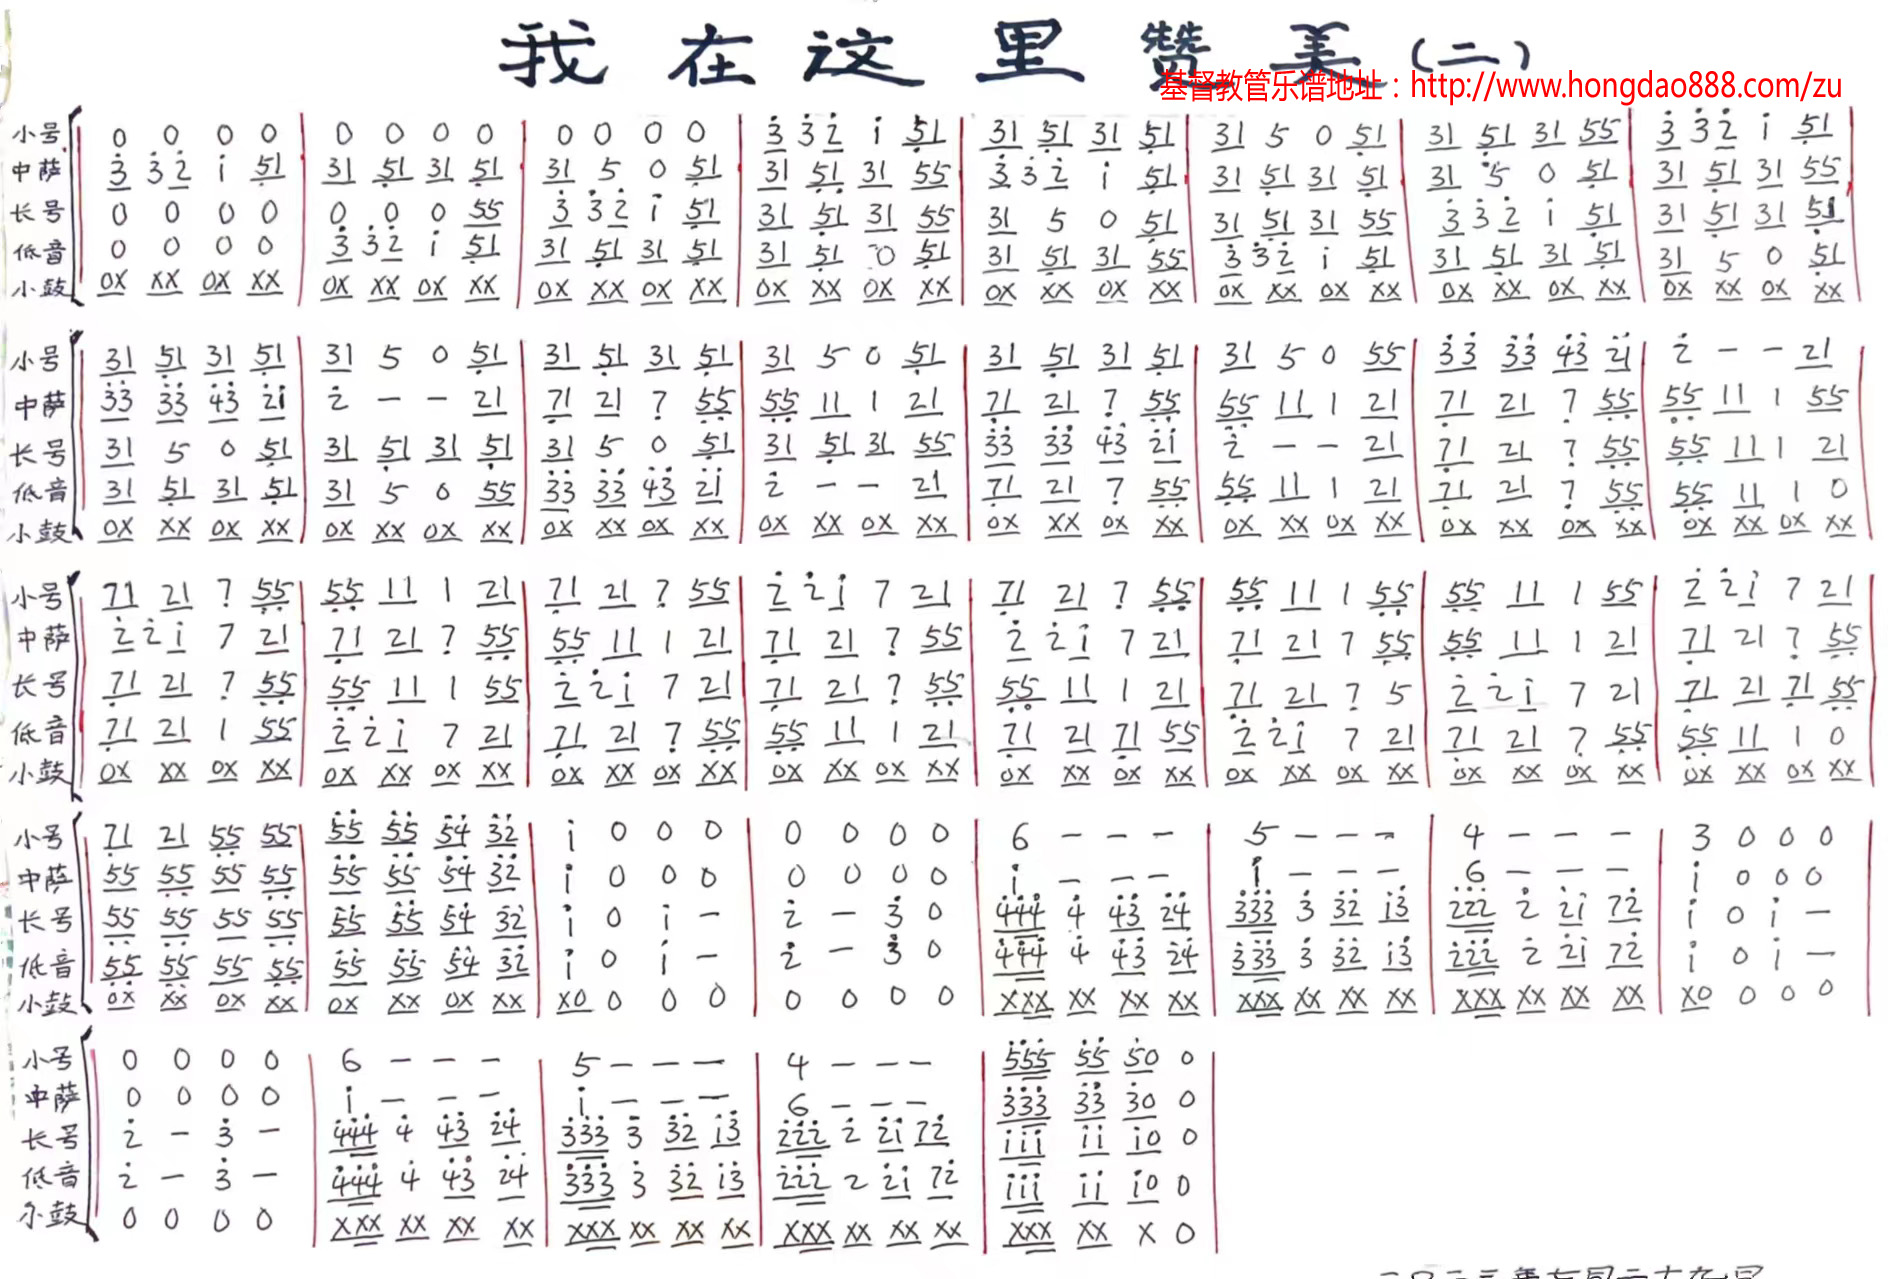 我在这里赞美(二)
基督教管乐谱地址：http://www.hongdao888.com/zu
小号 0 0 0 0 | 0 0 0 0 | 0 0 0 0 | 3 3 2 i 51 | 31 51 31 51 | 31 5 0 51 | 31 51 31 55 | 3 3 2 i 51
中萨 3 3 2 i 51 | 31 51 31 51 | 31 5 0 51 | 31 51 31 55 | 3 3 2 i 51 | 31 51 31 51 | 31 5 0 51 | 31 51 31 55
长号 0 0 0 0 | 0 0 0 55 | 3 3 2 i 51 | 31 51 31 55 | 31 5 0 51 | 31 51 31 55 | 3 3 2 i 51 | 31 51 31 51
低音 0 0 0 0 | 3 3 2 i 51 | 31 51 31 51 | 31 51 0 51 | 31 51 31 55 | 3 3 2 i 51 | 31 51 31 51 | 31 5 0 51
小鼓 0X XX 0X XX | 0X XX 0X XX | 0X XX 0X XX | 0X XX 0X XX | 0X XX 0X XX | 0X XX 0X XX | 0X XX 0X XX | 0X XX 0X XX
小号 31 51 31 51 | 31 5 0 51 | 31 51 31 51 | 31 5 0 51 | 31 51 31 51 | 31 5 0 55 | 33 33 43 21 | 2 - - 21
中萨 33 33 43 2i | 2 - - 21 | 71 21 7 55 | 55 11 1 21 | 71 21 7 55 | 55 11 1 21 | 71 21 7 55 | 55 11 1 55
长号 31 5 0 51 | 31 51 31 51 | 31 5 0 51 | 31 51 31 55 | 33 33 43 2i | 2 - - 21 | 71 21 7 55 | 55 11 1 21
低音 31 51 31 51 | 31 5 0 55 | 33 33 43 2i | 2 - - 21 | 71 21 7 55 | 55 11 1 21 | 71 21 7 55 | 55 11 1 0
小鼓 0X XX 0X XX | 0X XX 0X XX | 0X XX 0X XX | 0X XX 0X XX | 0X XX 0X XX | 0X XX 0X XX | 0X XX 0X XX | 0X XX 0X XX
小号 71 21 7 55 | 55 11 1 21 | 71 21 7 55 | 2 2 i 7 21 | 71 21 7 55 | 55 11 1 55 | 55 11 1 55 | 2 2 i 7 21
中萨 2 2 i 7 21 | 71 21 7 55 | 55 11 1 21 | 71 21 7 55 | 2 2 i 7 21 | 71 21 7 55 | 55 11 1 21 | 71 21 7 55
长号 71 21 7 55 | 55 11 1 55 | 2 2 i 7 21 | 71 21 7 55 | 55 11 1 21 | 71 21 7 5 | 2 2 i 7 21 | 71 21 71 55
低音 71 21 1 55 | 2 2 i 7 21 | 71 21 7 55 | 55 11 1 21 | 71 21 71 55 | 2 2 i 7 21 | 71 21 7 55 | 55 11 1 0
小鼓 0X XX 0X XX | 0X XX 0X XX | 0X XX 0X XX | 0X XX 0X XX | 0X XX 0X XX | 0X XX 0X XX | 0X XX 0X XX | 0X XX 0X XX
小号 71 21 55 55 | 55 55 54 32 | i 0 0 0 | 0 0 0 0 | 6 - - - | 5 - - - | 4 - - - | 3 0 0 0
中萨 55 55 55 55 | 55 55 54 32 | i 0 0 0 | 0 0 0 0 | i - - - | i - - - | 6 - - - | i 0 0 0
长号 55 55 55 55 | 55 55 54 32 | i 0 i - | 2 - 3 0 | 444 4 43 24 | 333 3 32 i3 | 222 2 2i 72 | i 0 i -
低音 55 55 55 55 | 55 55 54 32 | i 0 i - | 2 - 3 0 | 444 4 43 24 | 333 3 32 i3 | 222 2 2i 72 | i 0 i -
小鼓 0X XX 0X XX | 0X XX 0X XX | X0 0 0 0 | 0 0 0 0 | XXX XX XX XX | XXX XX XX XX | XXX XX XX XX | X0 0 0 0
小号 0 0 0 0 | 6 - - - | 5 - - - | 4 - - - | 555 55 50 0
中萨 0 0 0 0 | i - - - | i - - - | 6 - - - | 333 33 30 0
长号 2 - 3 - | 444 4 43 24 | 333 3 32 i3 | 222 2 2i 72 | iii ii i0 0
低音 2 - 3 - | 444 4 43 24 | 333 3 32 i3 | 222 2 2i 72 | iii ii i0 0
小鼓 0 0 0 0 | XXX XX XX XX | XXX XX XX XX | XXX XX XX XX | XXX XX X 0